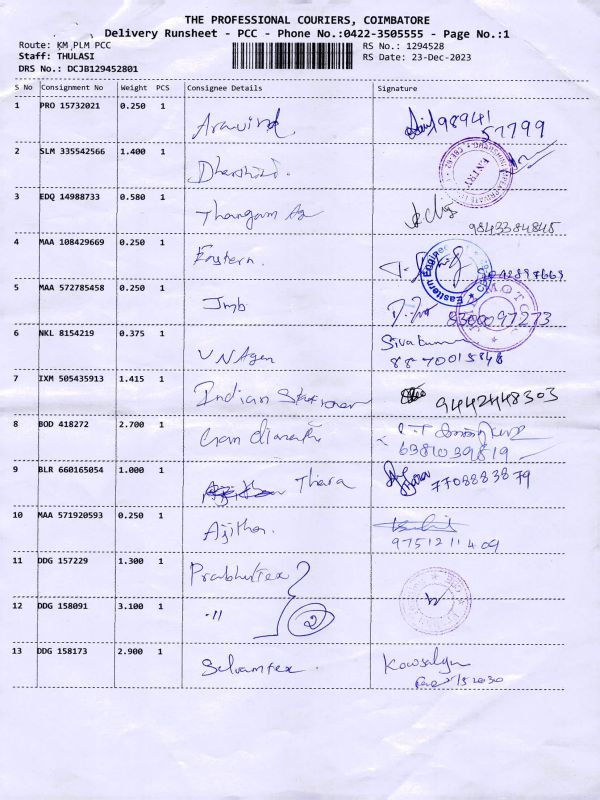 THE PROFESSIONAL COURIERS, COIMBATORE
Delivery Runsheet - PCC - Phone No.:0422-3505555 - Page No.:1
Route: KM,PLM PCC
RS No.: 1294528
Staff: THULASI
RS Date: 23-Dec-2023
DRS No.: DCJB129452801
S No Consignment No Weight PCS Consignee Details Signature
1 PRO 15732021 0.250 1 Aravind 98941
57799
2 SLM 335542566 1.400 1 Dharshini
ENTRY
3 EDQ 14988733 0.580 1 Thangam
9843384845
4 MAA 108429669 0.250 1 Eastern
Eastern Engine
5 MAA 572785458 0.250 1 Jmb
8300097273
6 NKL 8154219 0.375 1 VN Agen Sivakumar
8870015848
7 IXM 505435913 1.415 1 Indian 9442448303
8 BOD 418272 2.700 1
6381039819
9 BLR 660165054 1.000 1 Thara
7708883879
10 MAA 571920593 0.250 1 Ajithan
9751211409
11 DDG 157229 1.300 1 Prabhutex
12 DDG 158091 3.100 1 -11 2
13 DDG 158173 2.900 1 Selvamtex Kowsalya